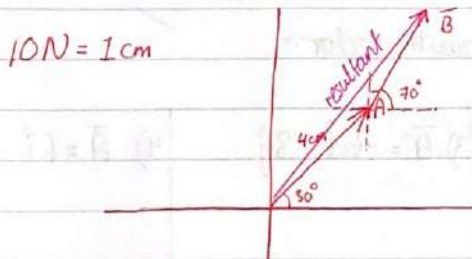 10N = 1cm
B
resultant
70°
A
4cm
30°